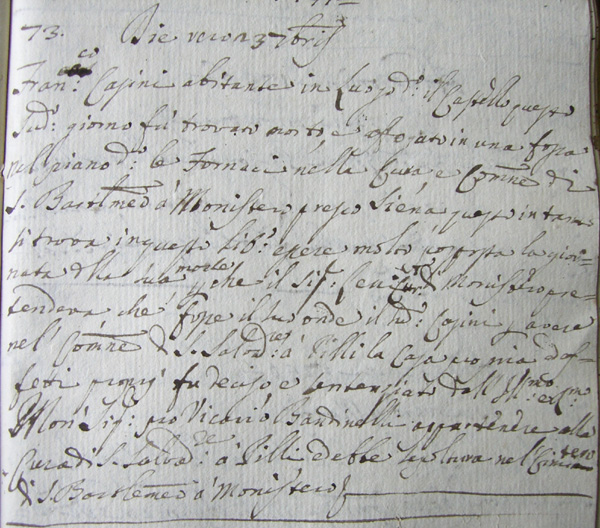 73. Die vero 7bris
Fran:co Casini abitante in Luogo d:o il Castello questo
sud: giorno fù trovato morto, e affogato in una fossa
nel piano d: le Fornaci nella Cura, e Comne di
S. Bartolmeo à Monistero presso Siena, questo intanto
si trova in questo lib: essere molto posposta la gior=
nata d la sua morte che il Sig: Monistero pre=
tendeva che fosse il suo onde il d: Casini avere
nel Comne di S. Salvad:re à Pilli la Casa propria
fetti proprij fu deciso e sentenziato dall Ill:mo
Mon: Sig: pro Vicario Bandinelli appartenere alla
Cura di S. Salva:de à Pilli e debbe nel Cimitero
di S. Bartolmeo à Monistero